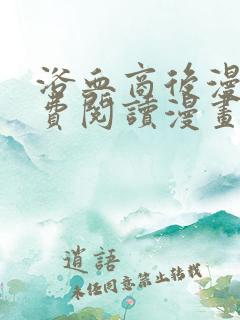 浴血商後漫
費閱讀漫畫
逍語
未經同意禁止轉載